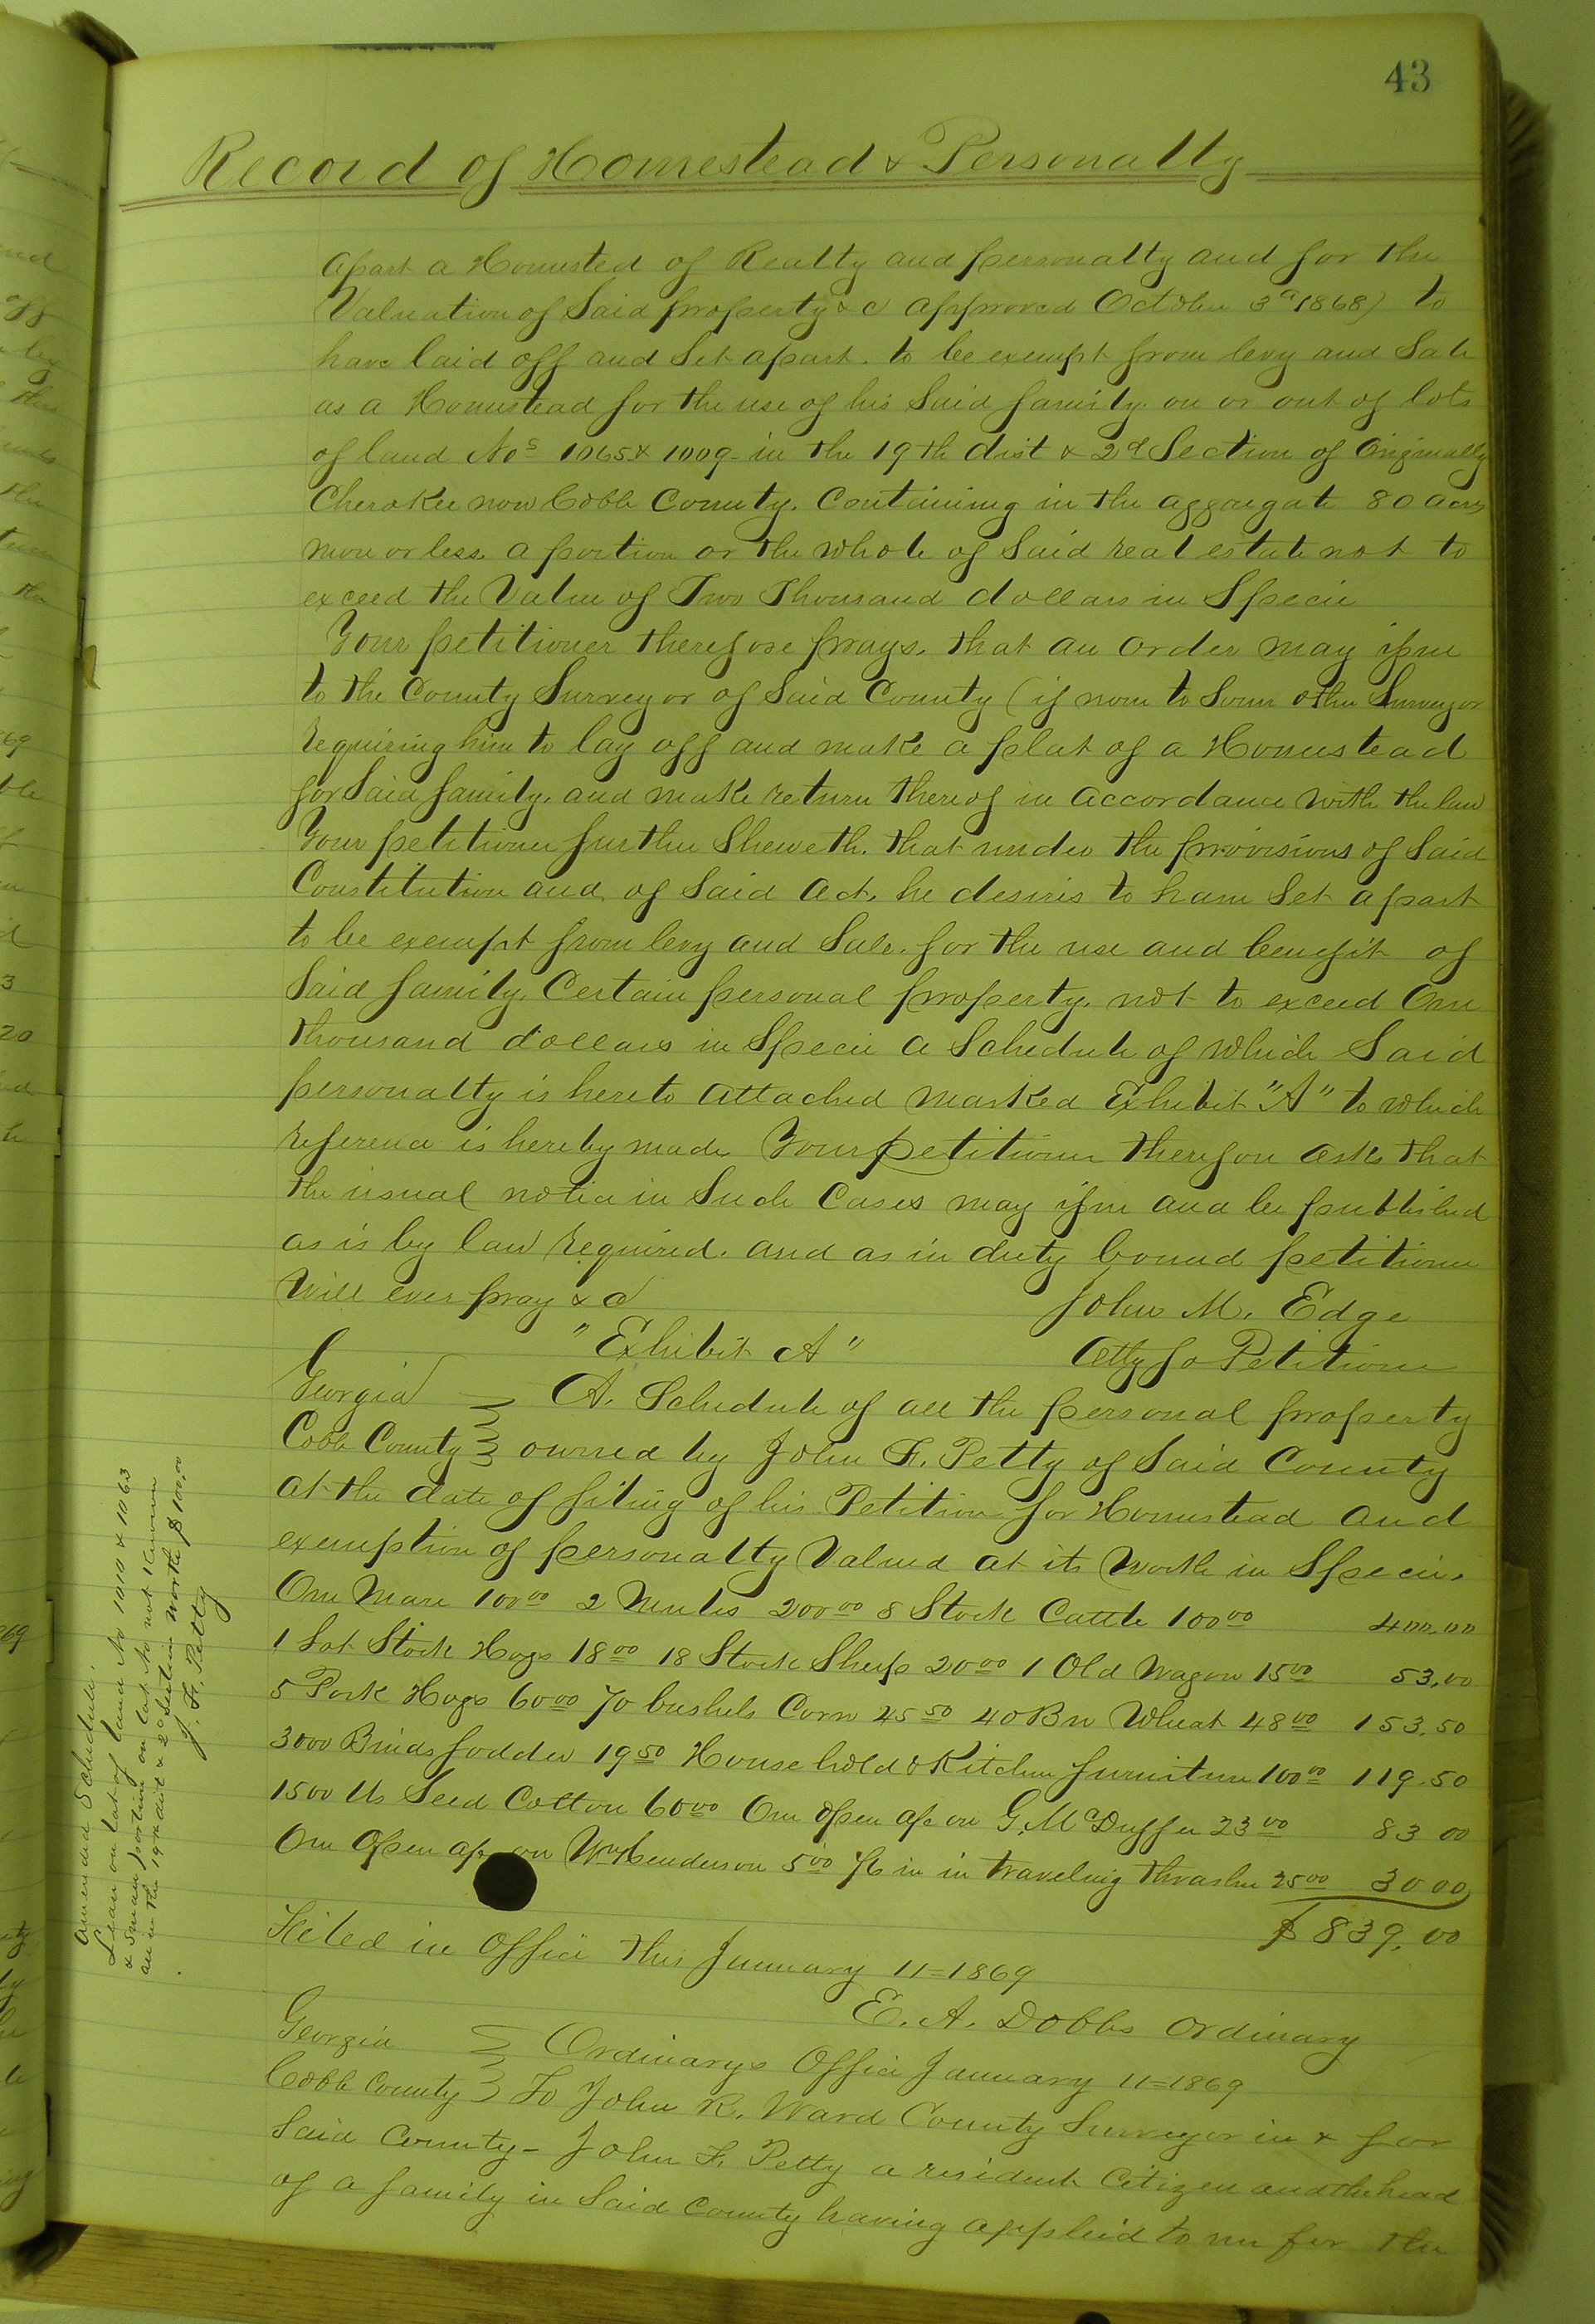 43
Record of Homestead & Personalty
apart a Homested of Realty and personalty and for the
Valuation of Said property & c approved October 3d 1868) to
have laid off and Set apart. to be exempt from levy and Sale
as a Homestead for the use of his Said family. on or out of lots
of land Nos 1065 & 1009 in the 19th dist & 2d Section of Originally
Cherokee now Cobb County. Containing in the aggregate 80 acres
more or less. a portion or the whole of Said real estate not to
exceed the Value of Two Thousand dollars in Specie
Your petitioner therefore prays. that an order may issue
to the County Surveyor of Said County (if none to Some other Surveyor
requiring him to lay off and make a plat of a Homestead
for Said family. and make return thereof in accordance with the law
Your petitioner further Sheweth. that under the provisions of Said
Constitution and of Said Act. he desires to have Set apart
to be exempt from levy and Sale. for the use and benefit of
Said family. Certain personal property. not to exceed One
thousand dollars in Specie a Schedule of which Said
personalty is hereto attached marked Exhibit "A" to which
reference is hereby made Your petitioner therefore asks that
the usual notice in Such Cases may issue and be published
as is by law required. and as in duty bound petitioner
Will ever pray & c John M. Edge
"Exhibit A" Atty for Petitioner
Georgia A. Schedule of all the personal property
Cobb County owned by John F. Petty of Said County
at the date of filing of his Petition for Homestead and
exemption of personalty Valued at its Worth in Specie.
One Mare 100.00 2 Mules 200.00 8 Stock Cattle 100.00 400.00
1 Lot Stock Hogs 18.00 18 Stock Sheep 20.00 1 Old Wagon 15.00 53.00
5 Pork Hogs 60.00 70 bushels Corn 45.50 40 Bu Wheat 48.00 153.50
3000 Binds fodder 19.50 House hold & Kitchen furniture 100.00 119.50
1500 lbs Seed Cotton 60.00 One open a/c on G. McDuffee 23.00 83 00
One Open a/c on Wm Henderson 5.00 in traveling thrasher 25.00 30 00
$839.00
Filed in Office this January 11=1869
E. A. Dobbs Ordinary
Georgia Ordinarys Office January 11=1869
Cobb County To John R. Ward County Surveyor in & for
Said County - John F. Petty a resident Citizen and the head
of a family in Said County having applied to me for the
Amended Schedule.
Lean on lot of land No 1010 & 1063
& Small portion on lot No not known
all in the 19th dist & 2d Section worth $100.00
J. F. Petty